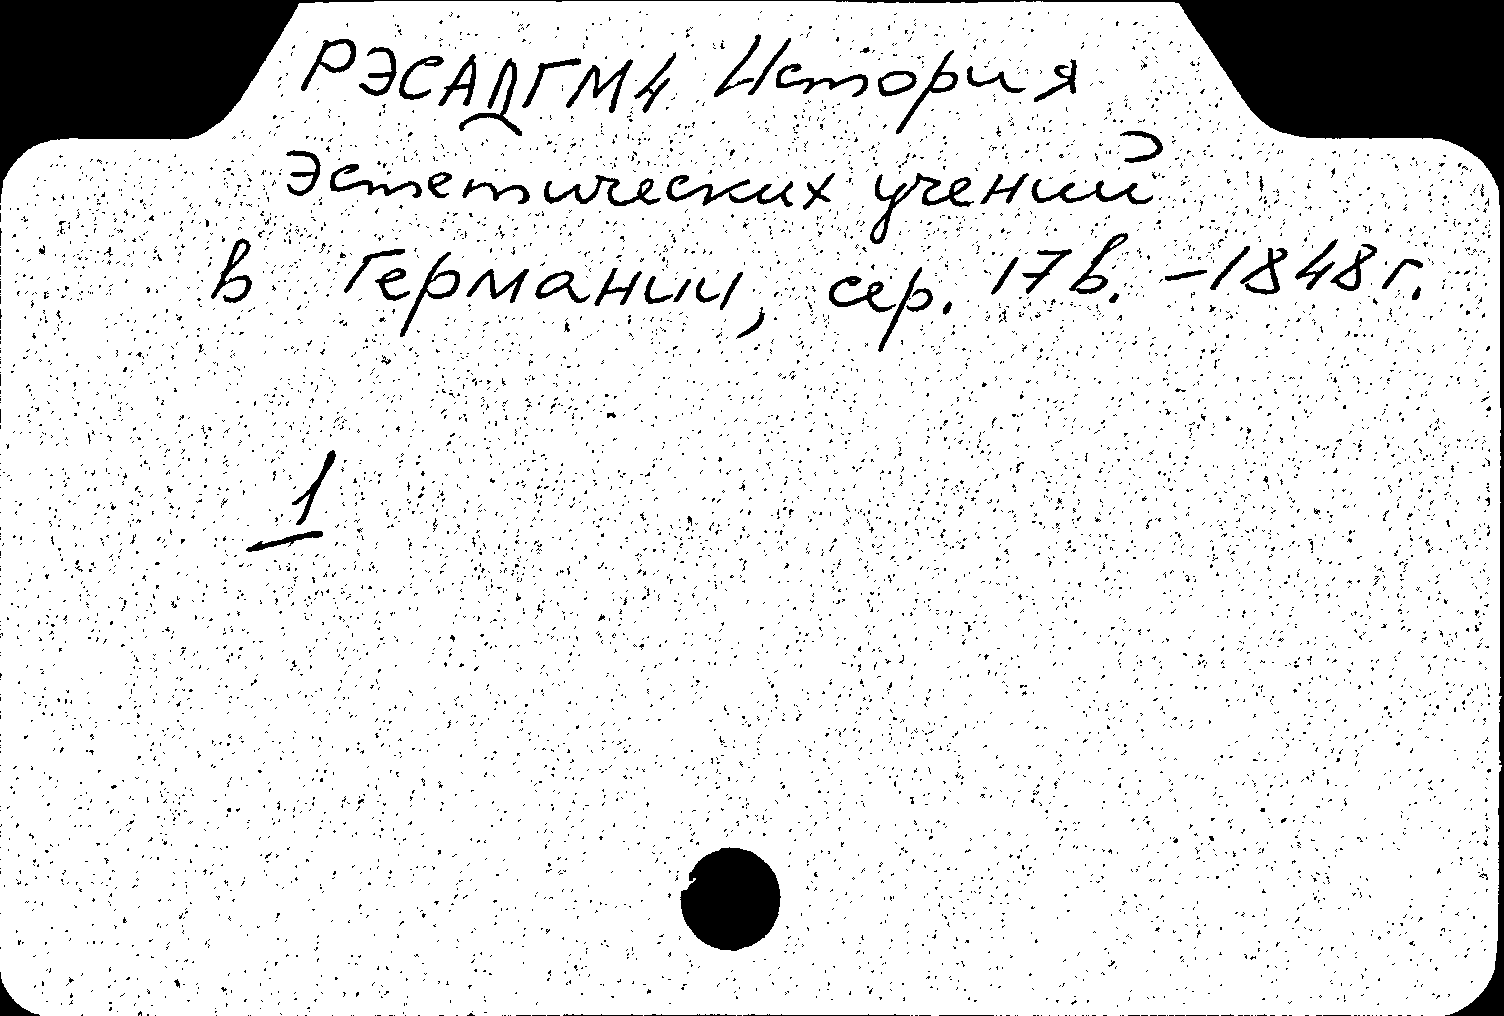 РЭСАДГМ4 История
эстетических учений
в Германии, сер. 17 в. – 1848 г.
1